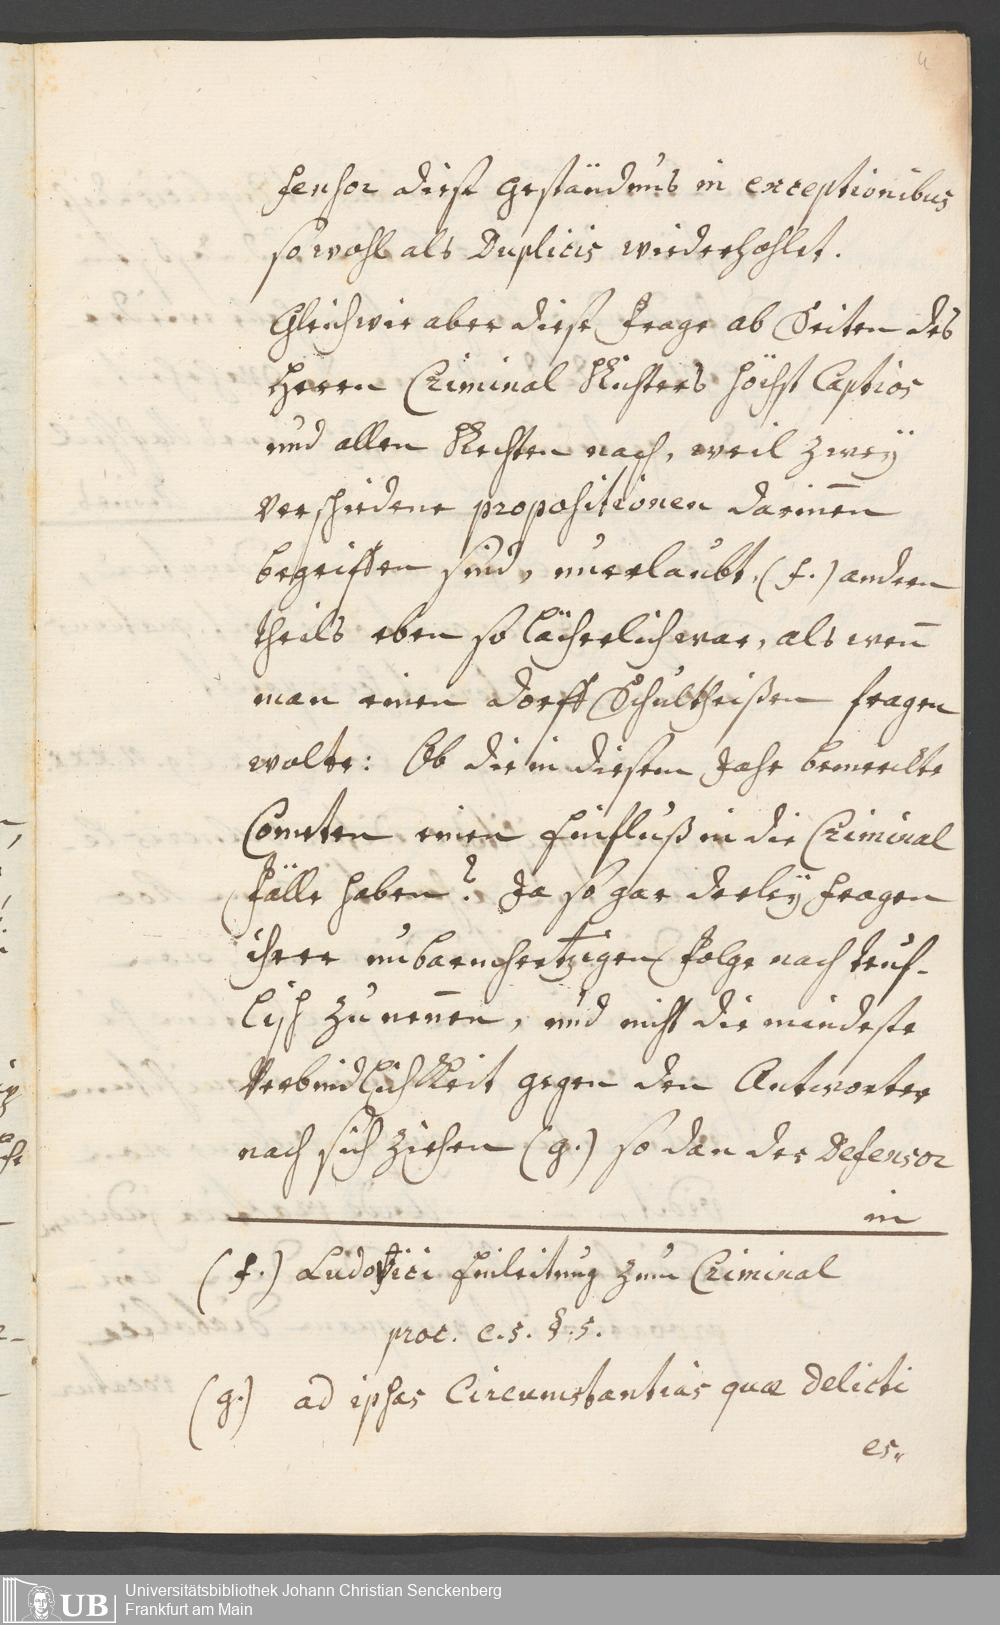 4
fensor diese Geständnüs in exceptionibus
so wohl als Duplicis wiederhohlet.
Gleichwie aber diese Frage ab Seiten des
Herrn Criminal Richters höchst Captios
und allen Rechten nach, weil zweÿ
verschiedene propositionen darinnen̅
begriffen sind, unerlaubt, (f.) andern
theils eben so lächerlich war, als wen̅
man einen Dorff Schultheißen fragen
wolte: Ob die in diesem Jahr bemerckte
Cometen einen Einfluß in die Criminal
Fälle haben? Ja so gar derleÿ Fragen
ihrer unbarmhertzigen Folge nach teuf-
lisch zu nen̅en, und nicht die mindeste
Verbindlichkeit gegen den Antworter
nach sich ziehen (g.) so dan der Defensor
in
(f.) Ludovici Einleitung zum Criminal
proc. c. 5. §. 5.
(g.) ad ipsas Circumstantias quæ delicti
es„
UB
Universitätsbibliothek Johann Christian Senckenberg
Frankfurt am Main